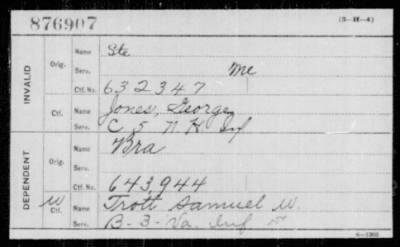 876907 (3-H-4)
INVALID
Orig. Name Ste
Serv. Me
Ctf. No. 632347
Ctf. Name Jones, George
Serv. C 5 N H Inf
DEPENDENT
Orig. Name Bra
Serv.
Ctf. No. 643,944
W Ctf. Name Trott Samuel W.
Serv. B-3-Va. Inf
6-1305